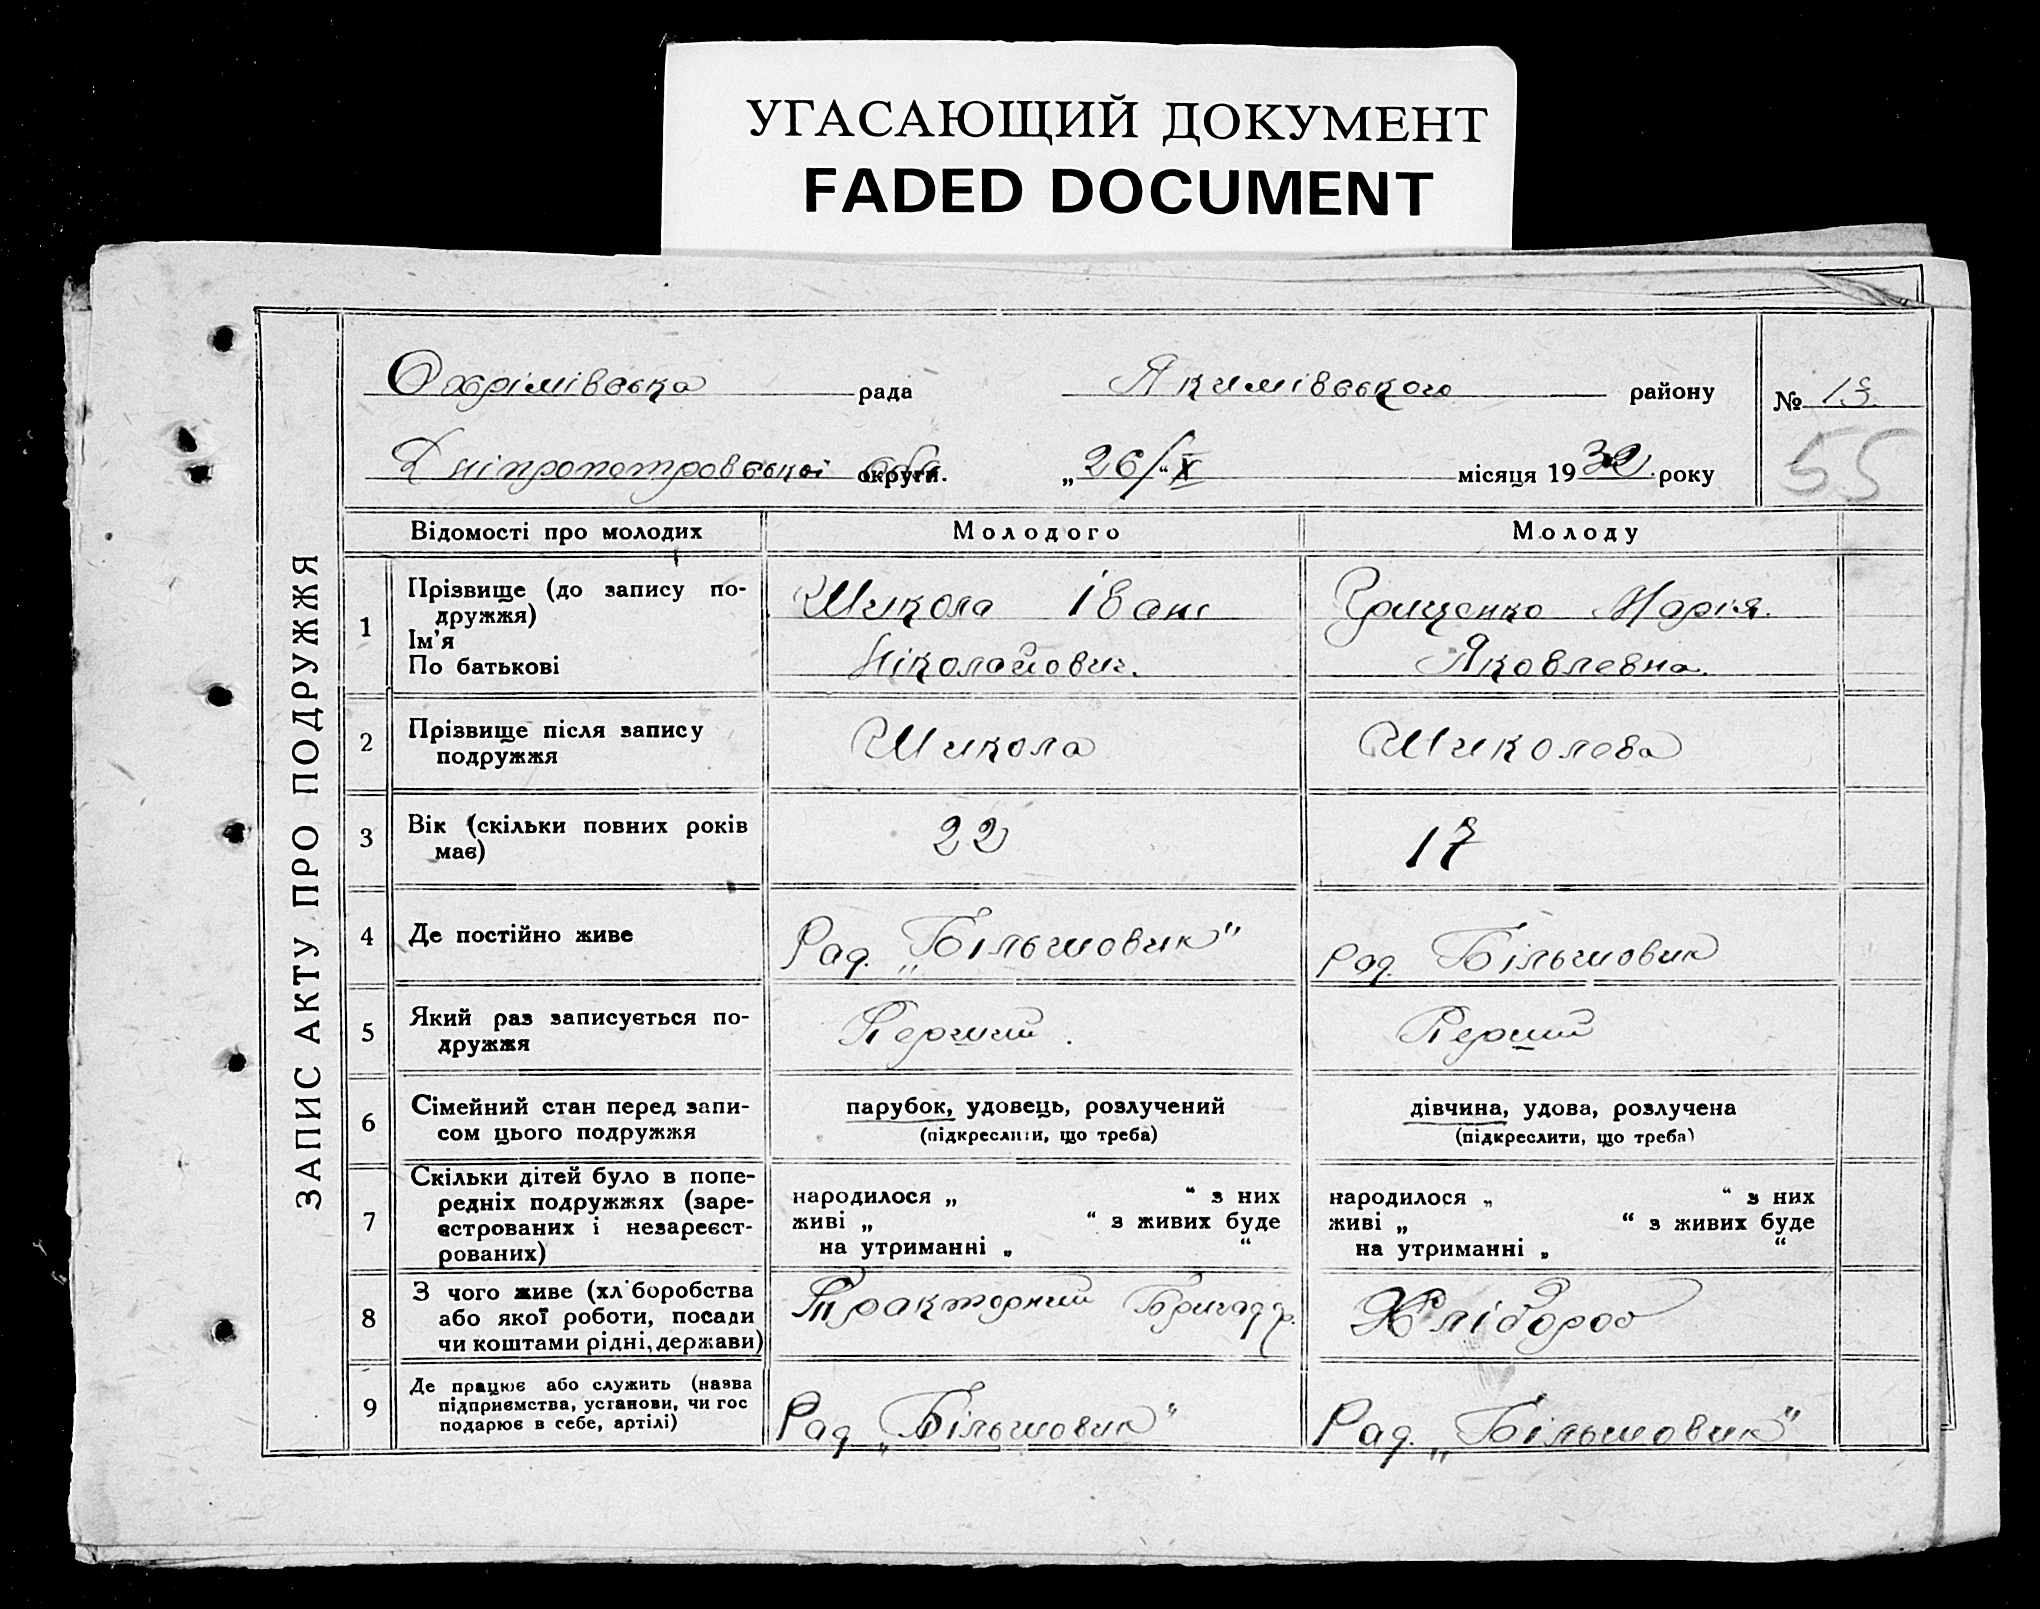 УГАСАЮЩИЙ ДОКУМЕНТ
FADED DOCUMENT
ЗАПИС АКТУ ПРО ПОДРУЖЖЯ
Охрімівська рада Якимівського району № 13
Дніпропетровської округи. „26/“ X місяця 1932 року
55
Відомості про молодих Молодого Молоду
1 Прізвище (до запису по-
дружжя)
Ім'я
По батькові
Шикола Іван
Ніколайович.
Грищенко Марія.
Яковлевна.
2 Прізвище після запису
подружжя
Шикола
Шиколева
3 Вік (скільки повних років
має)
22
17
4 Де постійно живе
Рад. „Більшовик“
Рад. Більшовик
5 Який раз записується по-
дружжя
Перший.
Перший
6 Сімейний стан перед запи-
сом цього подружжя
парубок, удовець, розлучений
(підкреслити, що треба)
дівчина, удова, розлучена
(підкреслити, що треба)
7 Скільки дітей було в попе-
редніх подружжях (заре-
єстрованих і незареєст-
рованих)
народилося „ “ з них
живі „ “ з живих буде
на утриманні „ “
народилося „ “ з них
живі „ “ з живих буде
на утриманні „ “
8 З чого живе (хліборобства
або якої роботи, посади
чи коштами рідні, держави)
Тракторний Бригадір.
Хлібороб
9 Де працює або служить (назва
підприємства, установи, чи гос
подарює в себе, артілі)
Рад „Більшовик“
Рад. „Більшовик“